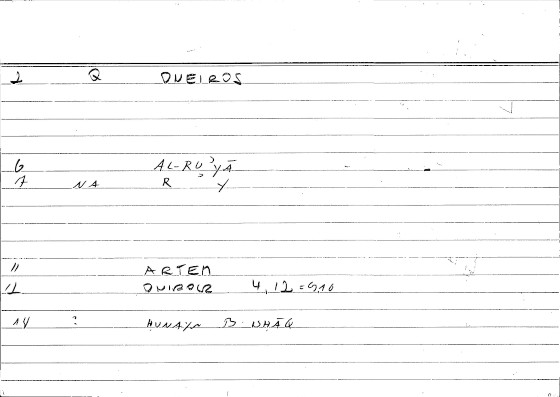 1 Q ONEIROS
6 AL-RUʾYĀ
7 NA R ʾ Y
11 ARTEM
12 ONIROCR 4,12 =
14 : HUNAYN B. ISHĀQ